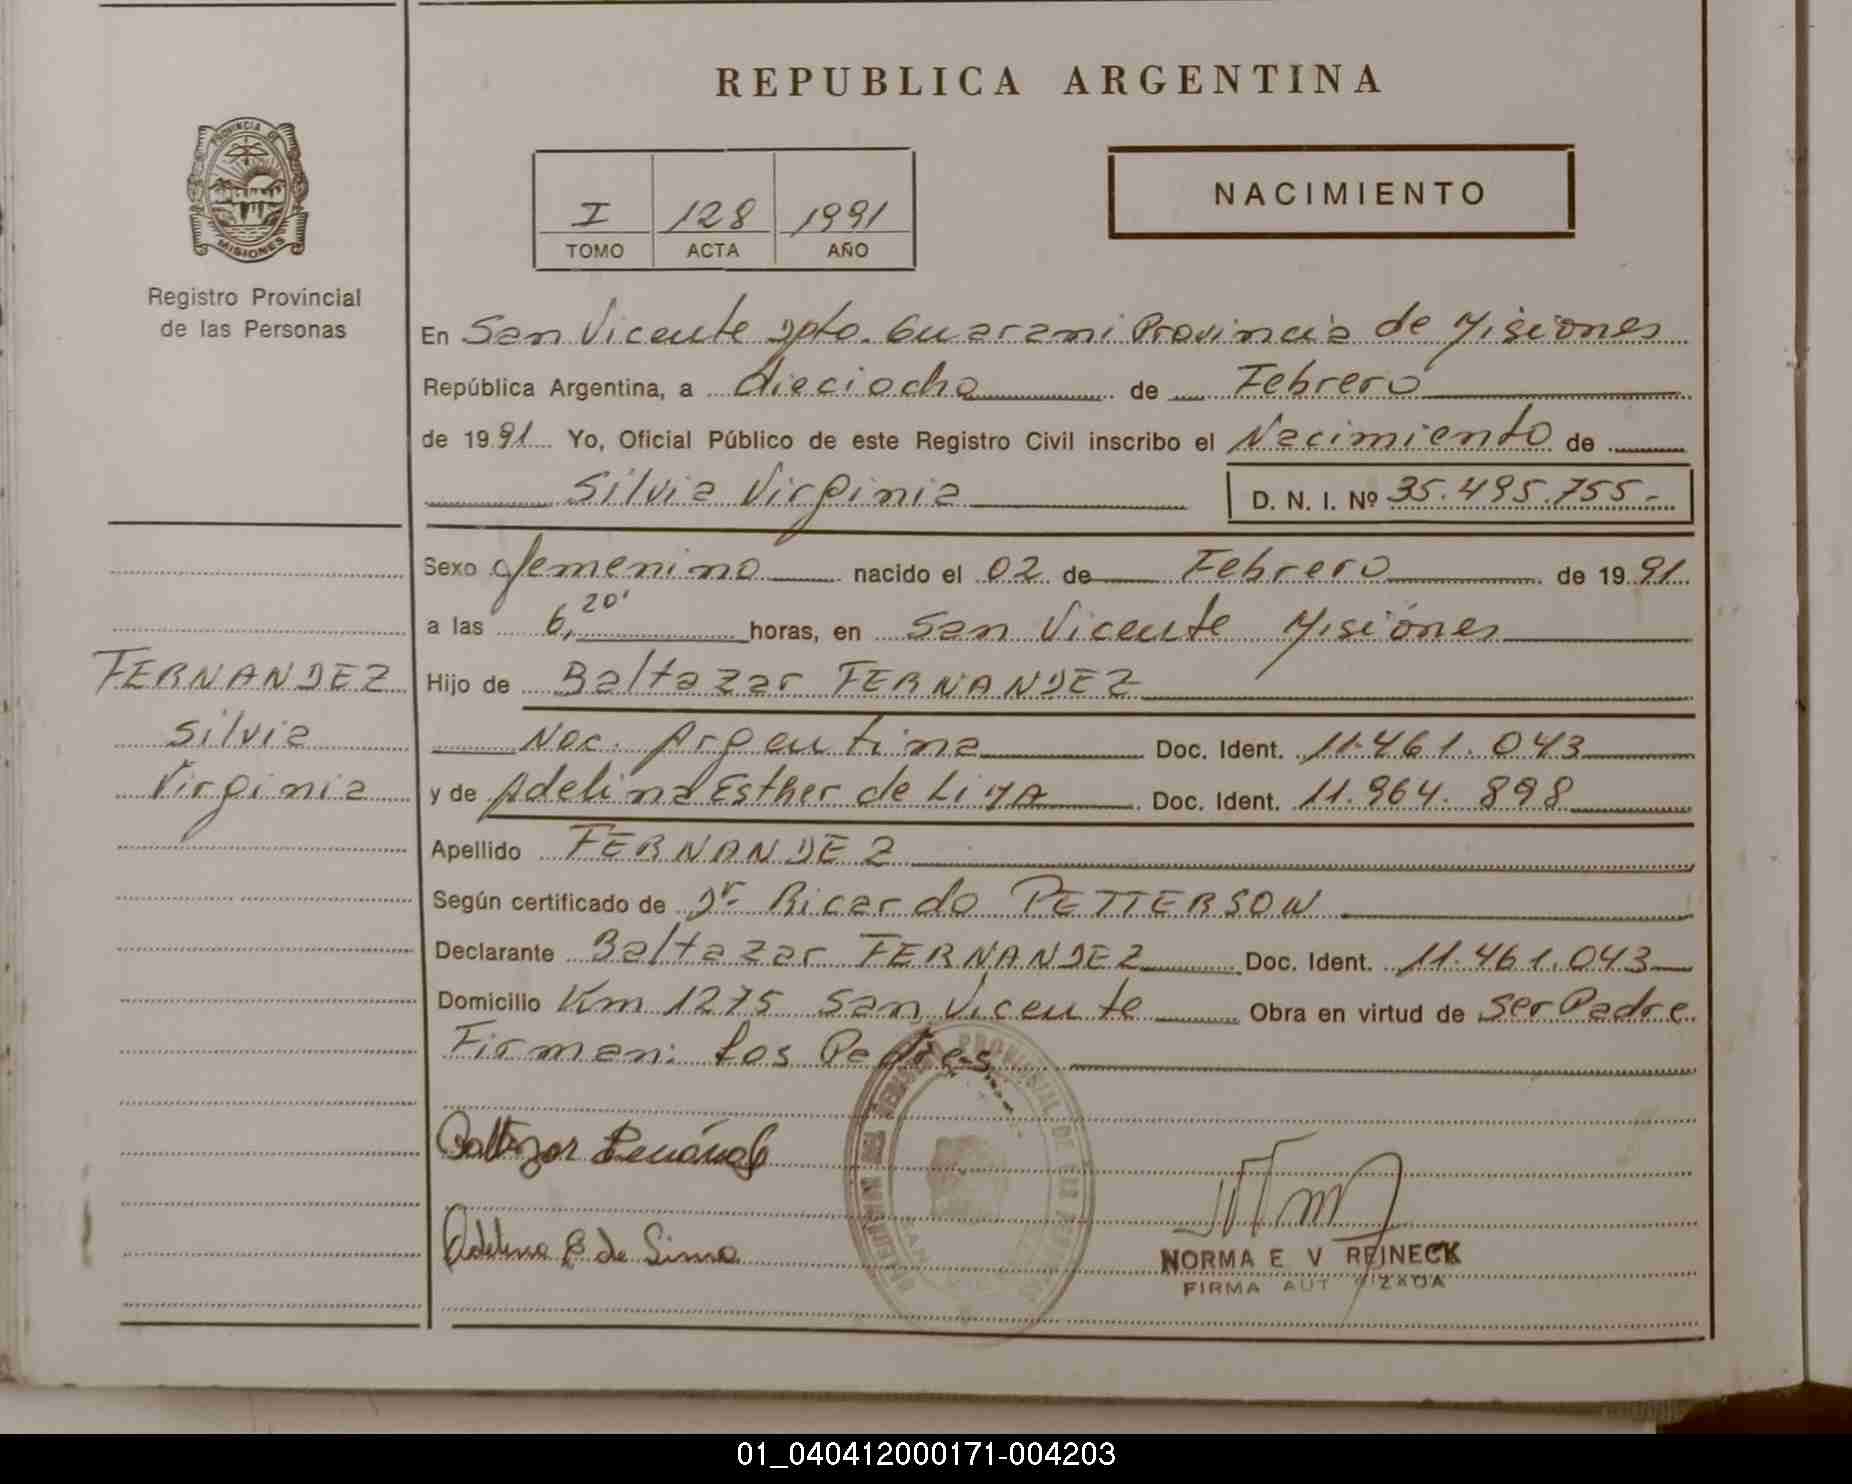 REPUBLICA ARGENTINA
PROVINCIA DE
MISIONES
Registro Provincial
de las Personas
I 128 1991
TOMO ACTA AÑO
NACIMIENTO
En San Vicente Dpto. Guarani Provincia de Misiones
República Argentina, a dieciocho de Febrero
de 1991 Yo, Oficial Público de este Registro Civil inscribo el Nacimiento de
Silvia Virginia D. N. I. Nº 35.495.755.-
Sexo femenino nacido el 02 de Febrero de 1991
a las 6,20' horas, en San Vicente Misiones
FERNANDEZ
Silvia
Virginia
Hijo de Baltazar FERNANDEZ
Nac. Argentina Doc. Ident. 11.461.043
y de Adelina Esther de Doc. Ident. 11.964.898
Apellido FERNANDEZ
Según certificado de Dr. Ricardo PETTERSON
Declarante Baltazar FERNANDEZ Doc. Ident. 11.461.043
Domicilio Km 1275 San Vicente Obra en virtud de Ser Padre
Firman: Los Padres
Baltazar
Adelina E de
NORMA E V REINECK
FIRMA
01_040412000171-004203